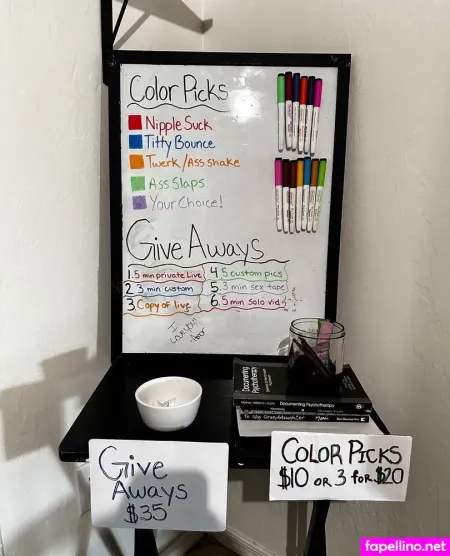 Color Picks
Nipple Suck
Titty Bounce
Twerk/Ass shake
Ass Slaps
Your Choice!
Give Aways
1. 5 min private Live
2. 3 min custom
3. Copy of live
4. 5 custom pics
5. 3 min sex tape
6. 5 min solo vid
I
Documenting
Psychotherapy
Documenting Psychotherapy
To My Granddaughter
Give
Aways
$35
Color Picks
$10 or 3 for $20
fapellino.net